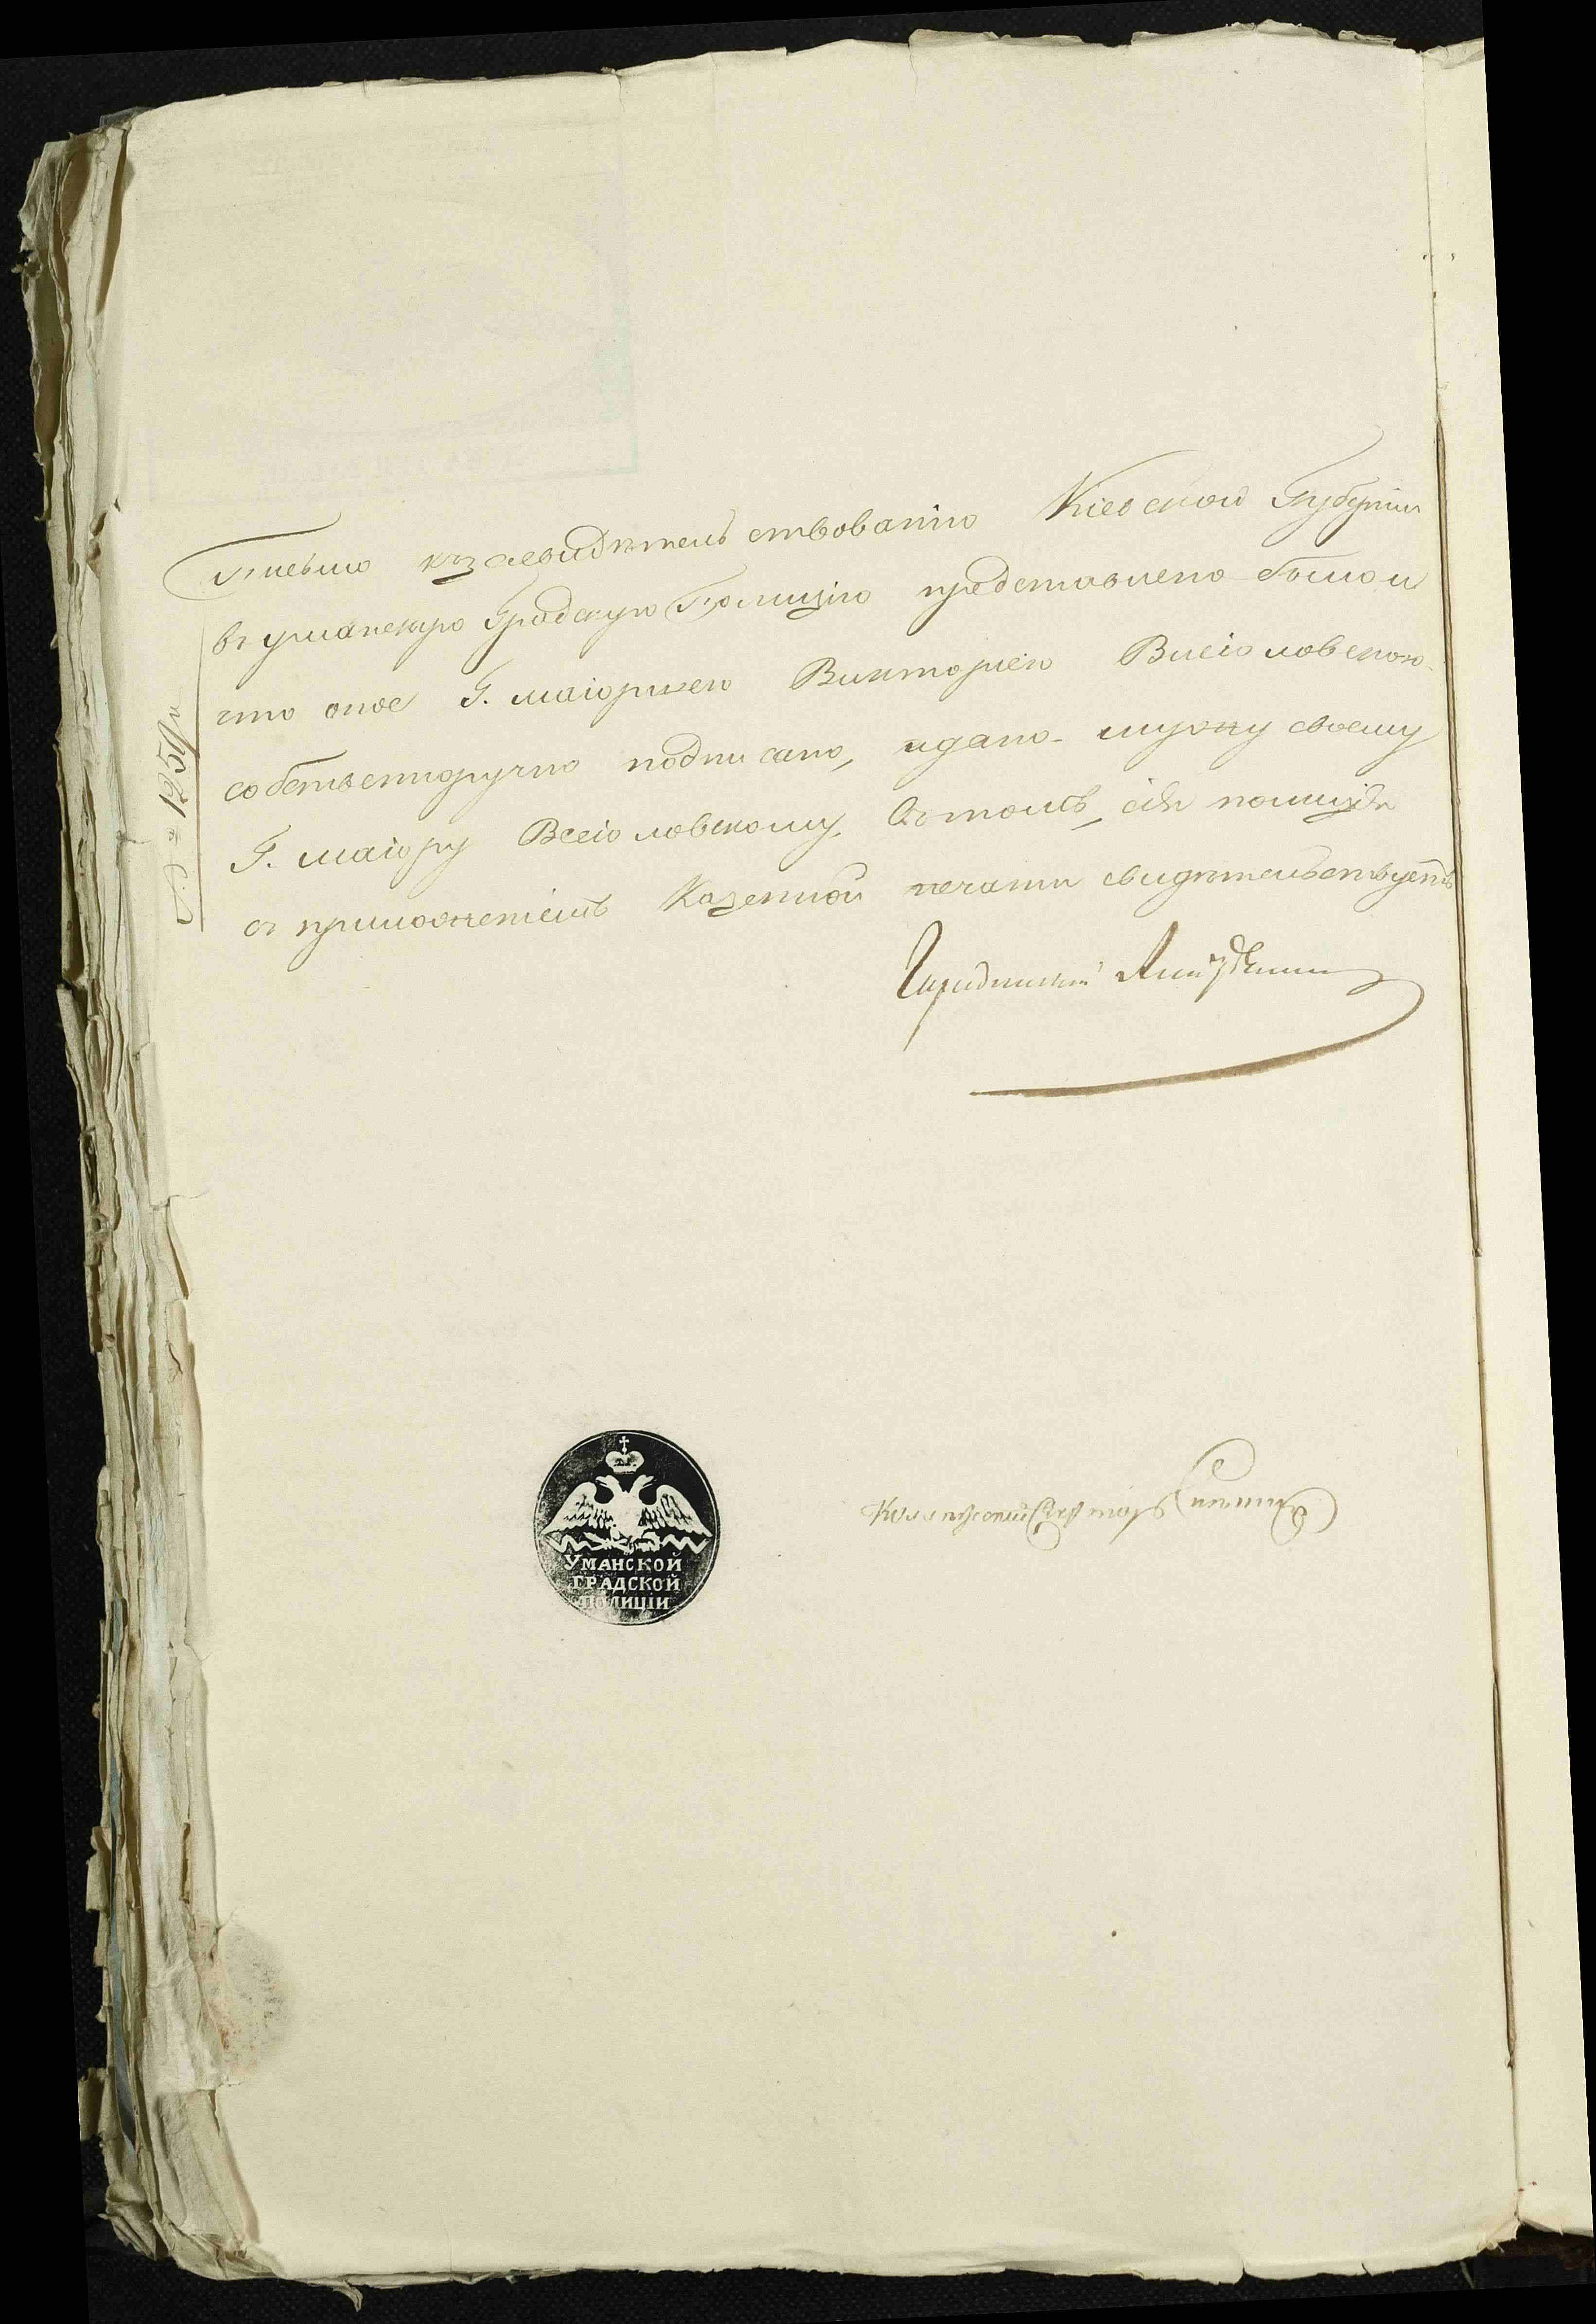 Письмо къ засвидѣтельствованію Кіевской Губерніи
въ уманскую Градскую Полицію представлено было и
что оное Г. маіоршею Викторіею Всеіоловскою
собственноручно подписано, и дано мужу своему
Г. маіору Всеіоловскому. Въ томъ, сія полиція
съ приложеніемъ Казенной печати свидѣтельствуетъ
Городничій
№ 1259
УМАНСКОЙ
ГРАДСКОЙ
ПОЛИЦІИ